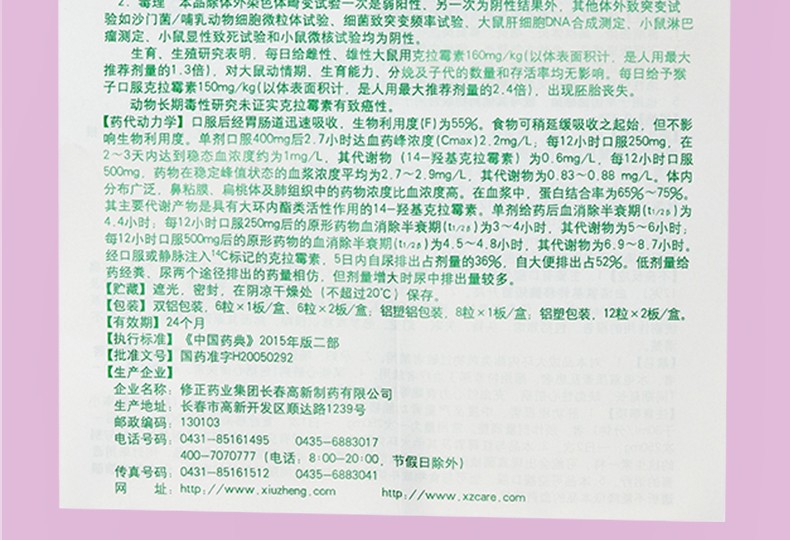 2. 毒理 本品除体外染色体畸变试验一次是弱阳性、另一次为阴性结果外，其他体外致突变试
验如沙门菌/哺乳动物细胞微粒体试验、细菌致突变频率试验、大鼠肝细胞DNA合成测定、小鼠淋巴
瘤测定、小鼠显性致死试验和小鼠微核试验均为阴性。
生育、生殖研究表明，每日给雌性、雄性大鼠用克拉霉素160mg/kg(以体表面积计，是人用最大
推荐剂量的1.3倍)，对大鼠动情期、生育能力、分娩及子代的数量和存活率均无影响。每日给予猴
子口服克拉霉素150mg/kg(以体表面积计，是人用最大推荐剂量的2.4倍)，出现胚胎丧失。
动物长期毒性研究未证实克拉霉素有致癌性。
【药代动力学】口服后经胃肠道迅速吸收，生物利用度(F)为55%。食物可稍延缓吸收之起始，但不影
响生物利用度。单剂口服400mg后2.7小时达血药峰浓度(Cmax)2.2mg/L；每12小时口服250mg，在
2～3天内达到稳态血浓度约为1mg/L，其代谢物（14-羟基克拉霉素）为0.6mg/L，每12小时口服
500mg，药物在稳定峰值状态的血浆浓度平均为2.7~2.9mg/L，其代谢物为0.83~0.88 mg/L。体内
分布广泛，鼻粘膜、扁桃体及肺组织中的药物浓度比血浓度高。在血浆中，蛋白结合率为65%~75%。
其主要代谢产物是具有大环内酯类活性作用的14-羟基克拉霉素。单剂给药后血消除半衰期(t1/2β)为
4.4小时；每12小时口服250mg后的原形药物血消除半衰期(t1/2β)为3~4小时，其代谢物为5~6小时；
每12小时口服500mg后的原形药物的血消除半衰期(t1/2β)为4.5~4.8小时，其代谢物为6.9~8.7小时。
经口服或静脉注入14C标记的克拉霉素，5日内自尿排出占剂量的36%，自大便排出占52%。低剂量给
药经粪、尿两个途径排出的药量相仿，但剂量增大时尿中排出量较多。
【贮藏】遮光，密封，在阴凉干燥处（不超过20℃）保存。
【包装】双铝包装，6粒×1板/盒、6粒×2板/盒；铝塑铝包装，8粒×1板/盒；铝塑包装，12粒×2板/盒。
【有效期】24个月
【执行标准】《中国药典》2015年版二部
【批准文号】国药准字H20050292
【生产企业】
企业名称：修正药业集团长春高新制药有限公司
生产地址：长春市高新开发区顺达路1239号
邮政编码：130103
电话号码：0431-85161495 0435-6883017
400-7070777（电话：8:00-20:00，节假日除外）
传真号码：0431-85161512 0435-6883041
网 址：http://www.xiuzheng.com http://www.xzcare.com